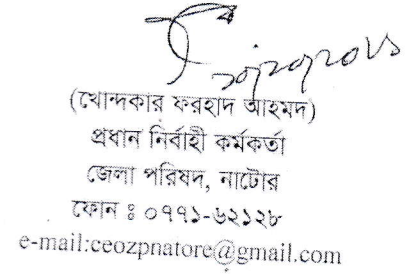 (খোন্দকার ফরহাদ আহমদ)
প্রধান নির্বাহী কর্মকর্তা
জেলা পরিষদ, নাটোর
ফোন ঃ ০৭৭১-৬২১২৮
e-mail:ceozpnatore@gmail.com